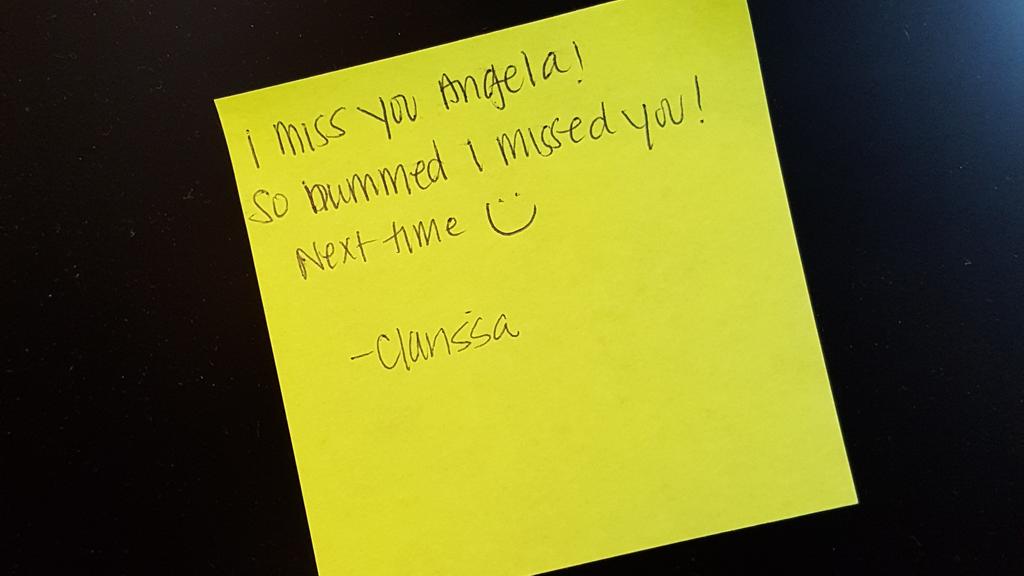 I miss you Angela!
So bummed I missed you!
Next time :)
-Clarissa